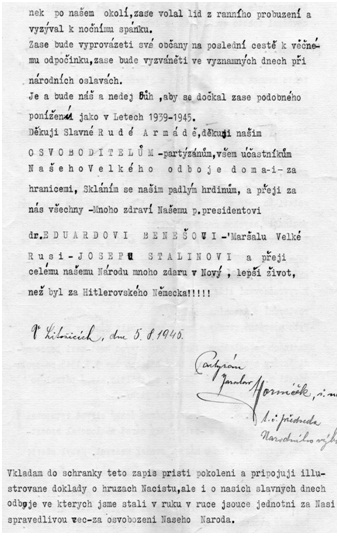 nek po našem okolí,zase volal lid z ranního probuzení a
vyzýval k nočnímu spánku.
Zase bude vyprovázeti své občany na poslední cestě k věčné-
mu odpočinku,zase bude vyzváněti ve významných dnech při
národních oslavách.
Je a bude náš a nedej Bůh ,aby se dočkal zase podobného
ponížení jako v Letech 1939-1945.
Děkuji Slavné R u d é A r m á d ě ,děkuji našim
O S V O B O D I T E L Ů M -partyzánům,všem účastníkům
N a š e h o V e l k é h o o d b o j e d o m a -i- za
hranicemi, Skláním se našim padlým hrdinům, a přeji za
nás všechny -Mnoho zdraví Našemu p.presidentovi
dr.E D U A R D O V I B E N E Š O V I -'Maršalu Velké
R u s i - J O S E F U S T A L I N O V I a přeji
celému našemu Národu mnoho zdaru v Nový , lepší život,
než byl za Hitlerovského Německa!!!!!
dne 5.8.1945.
Partyzán
Jaroslav
t.č. předseda
Národního
Vkladam do schranky teto zapis pristi pokoleni a pripojuji illu-
strovane doklady o hruzach Nacistu,ale i o nasich slavných dnech
odboje ve kterych jsme stali v ruku v ruce jsouce jednotni za Nasi
spravedlivou vec-za osvobozeni Naseho Naroda.